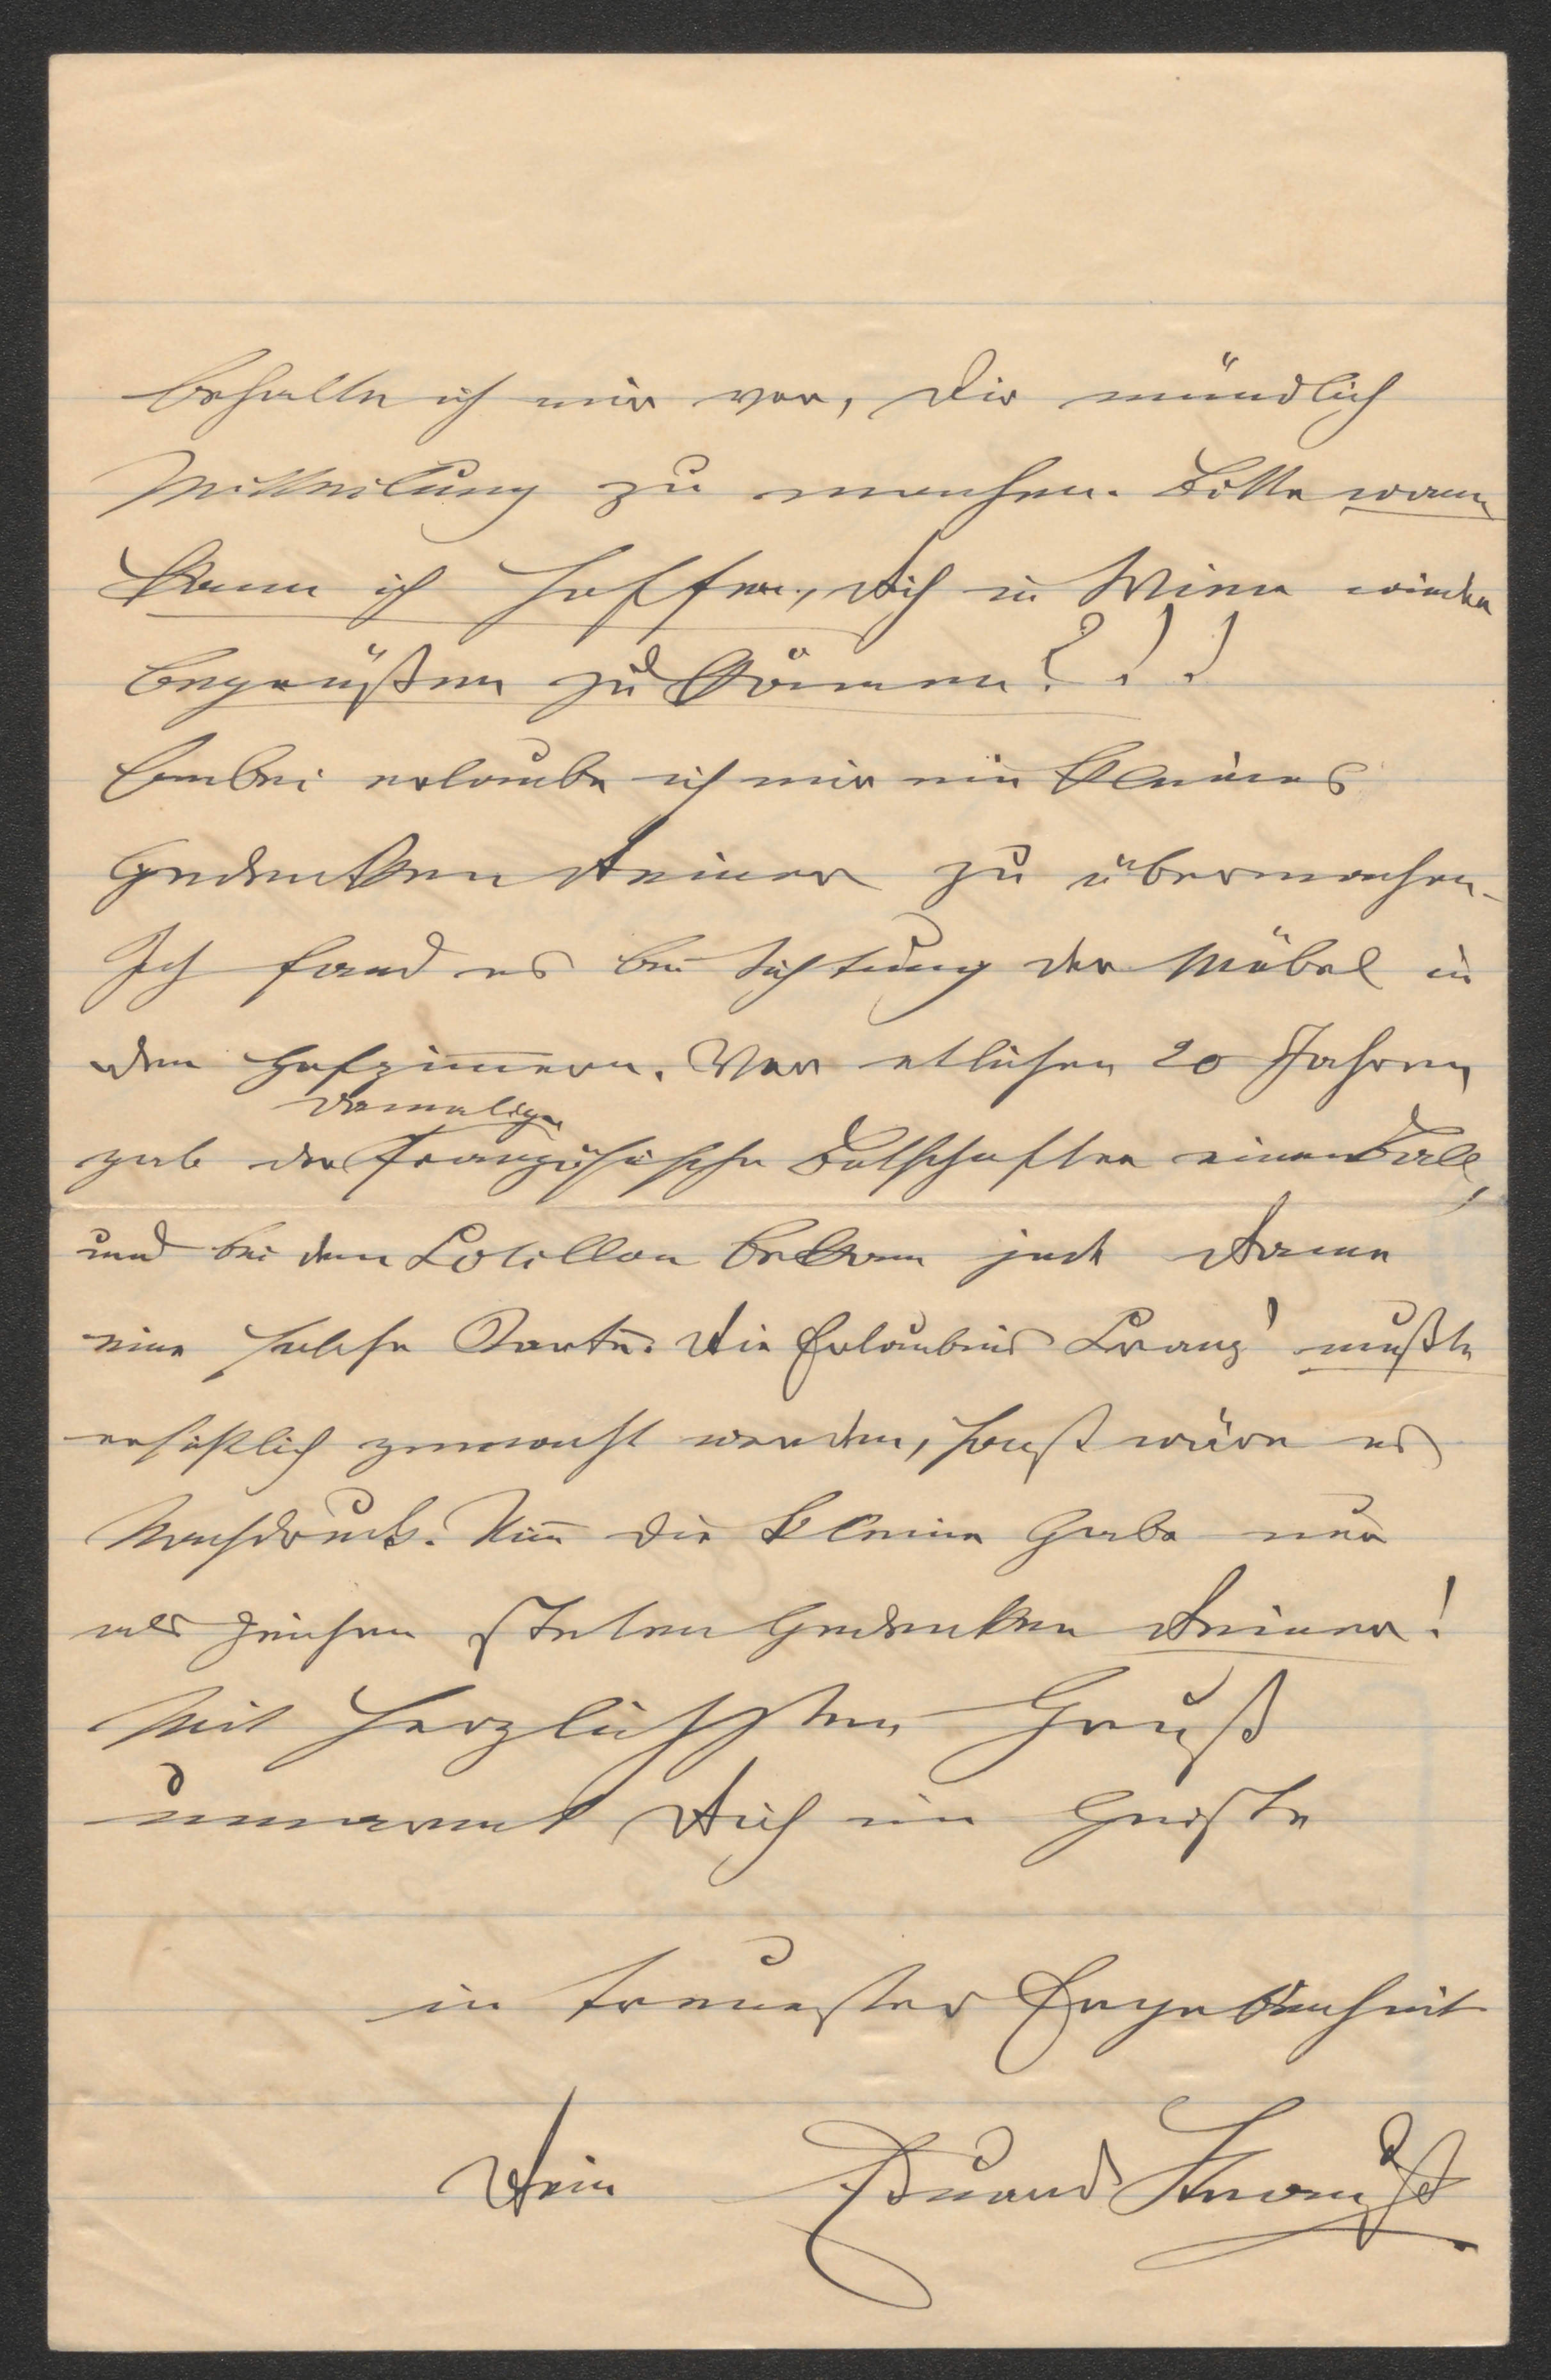 behalte ich mir vor, Dir mündlich
Mittheilung zu machen. Bitte wann
kann ich hoffen, Dich in Wien wieder
begrüßen zu können?!!
Anbei erlaube ich mir ein kleines
Gedenken Deiner zu übermachen.
Ich fand es bei Sichtung der Möbel in
den Hofzimmern. Vor etlichen 20 Jahren
damalige
gab der französische Botschafter einen Ball,
und bei dem Cotillon bekam jede Dame
eine solche Karte. Die Erlaubnis Franz' mußte
ersichtlich gemacht werden, sonst wäre es
Nachdruck. Nim̅ die kleine Gabe nur
als Zeichen steten Gedenken Deiner!
Mit herzlichsten Gruß
umarmt Dich im Geiste
in treuester Ergebenheit
Dein Eduard Strauß